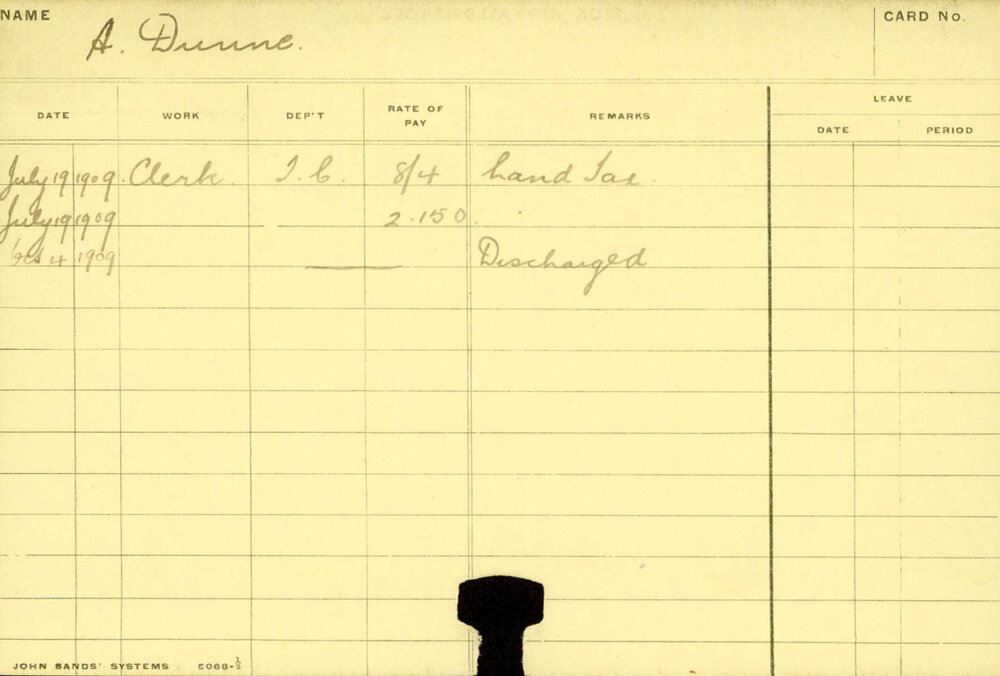 NAME A. Dunne. CARD No.
LEAVE
DATE WORK DEP'T RATE OF PAY REMARKS DATE PERIOD
July 19 1909. Clerk. T.C. 8/4 Land Tax.
July 19 1909 2.150.
Oct 4 1909 Discharged
JOHN SANDS' SYSTEMS 5068-½